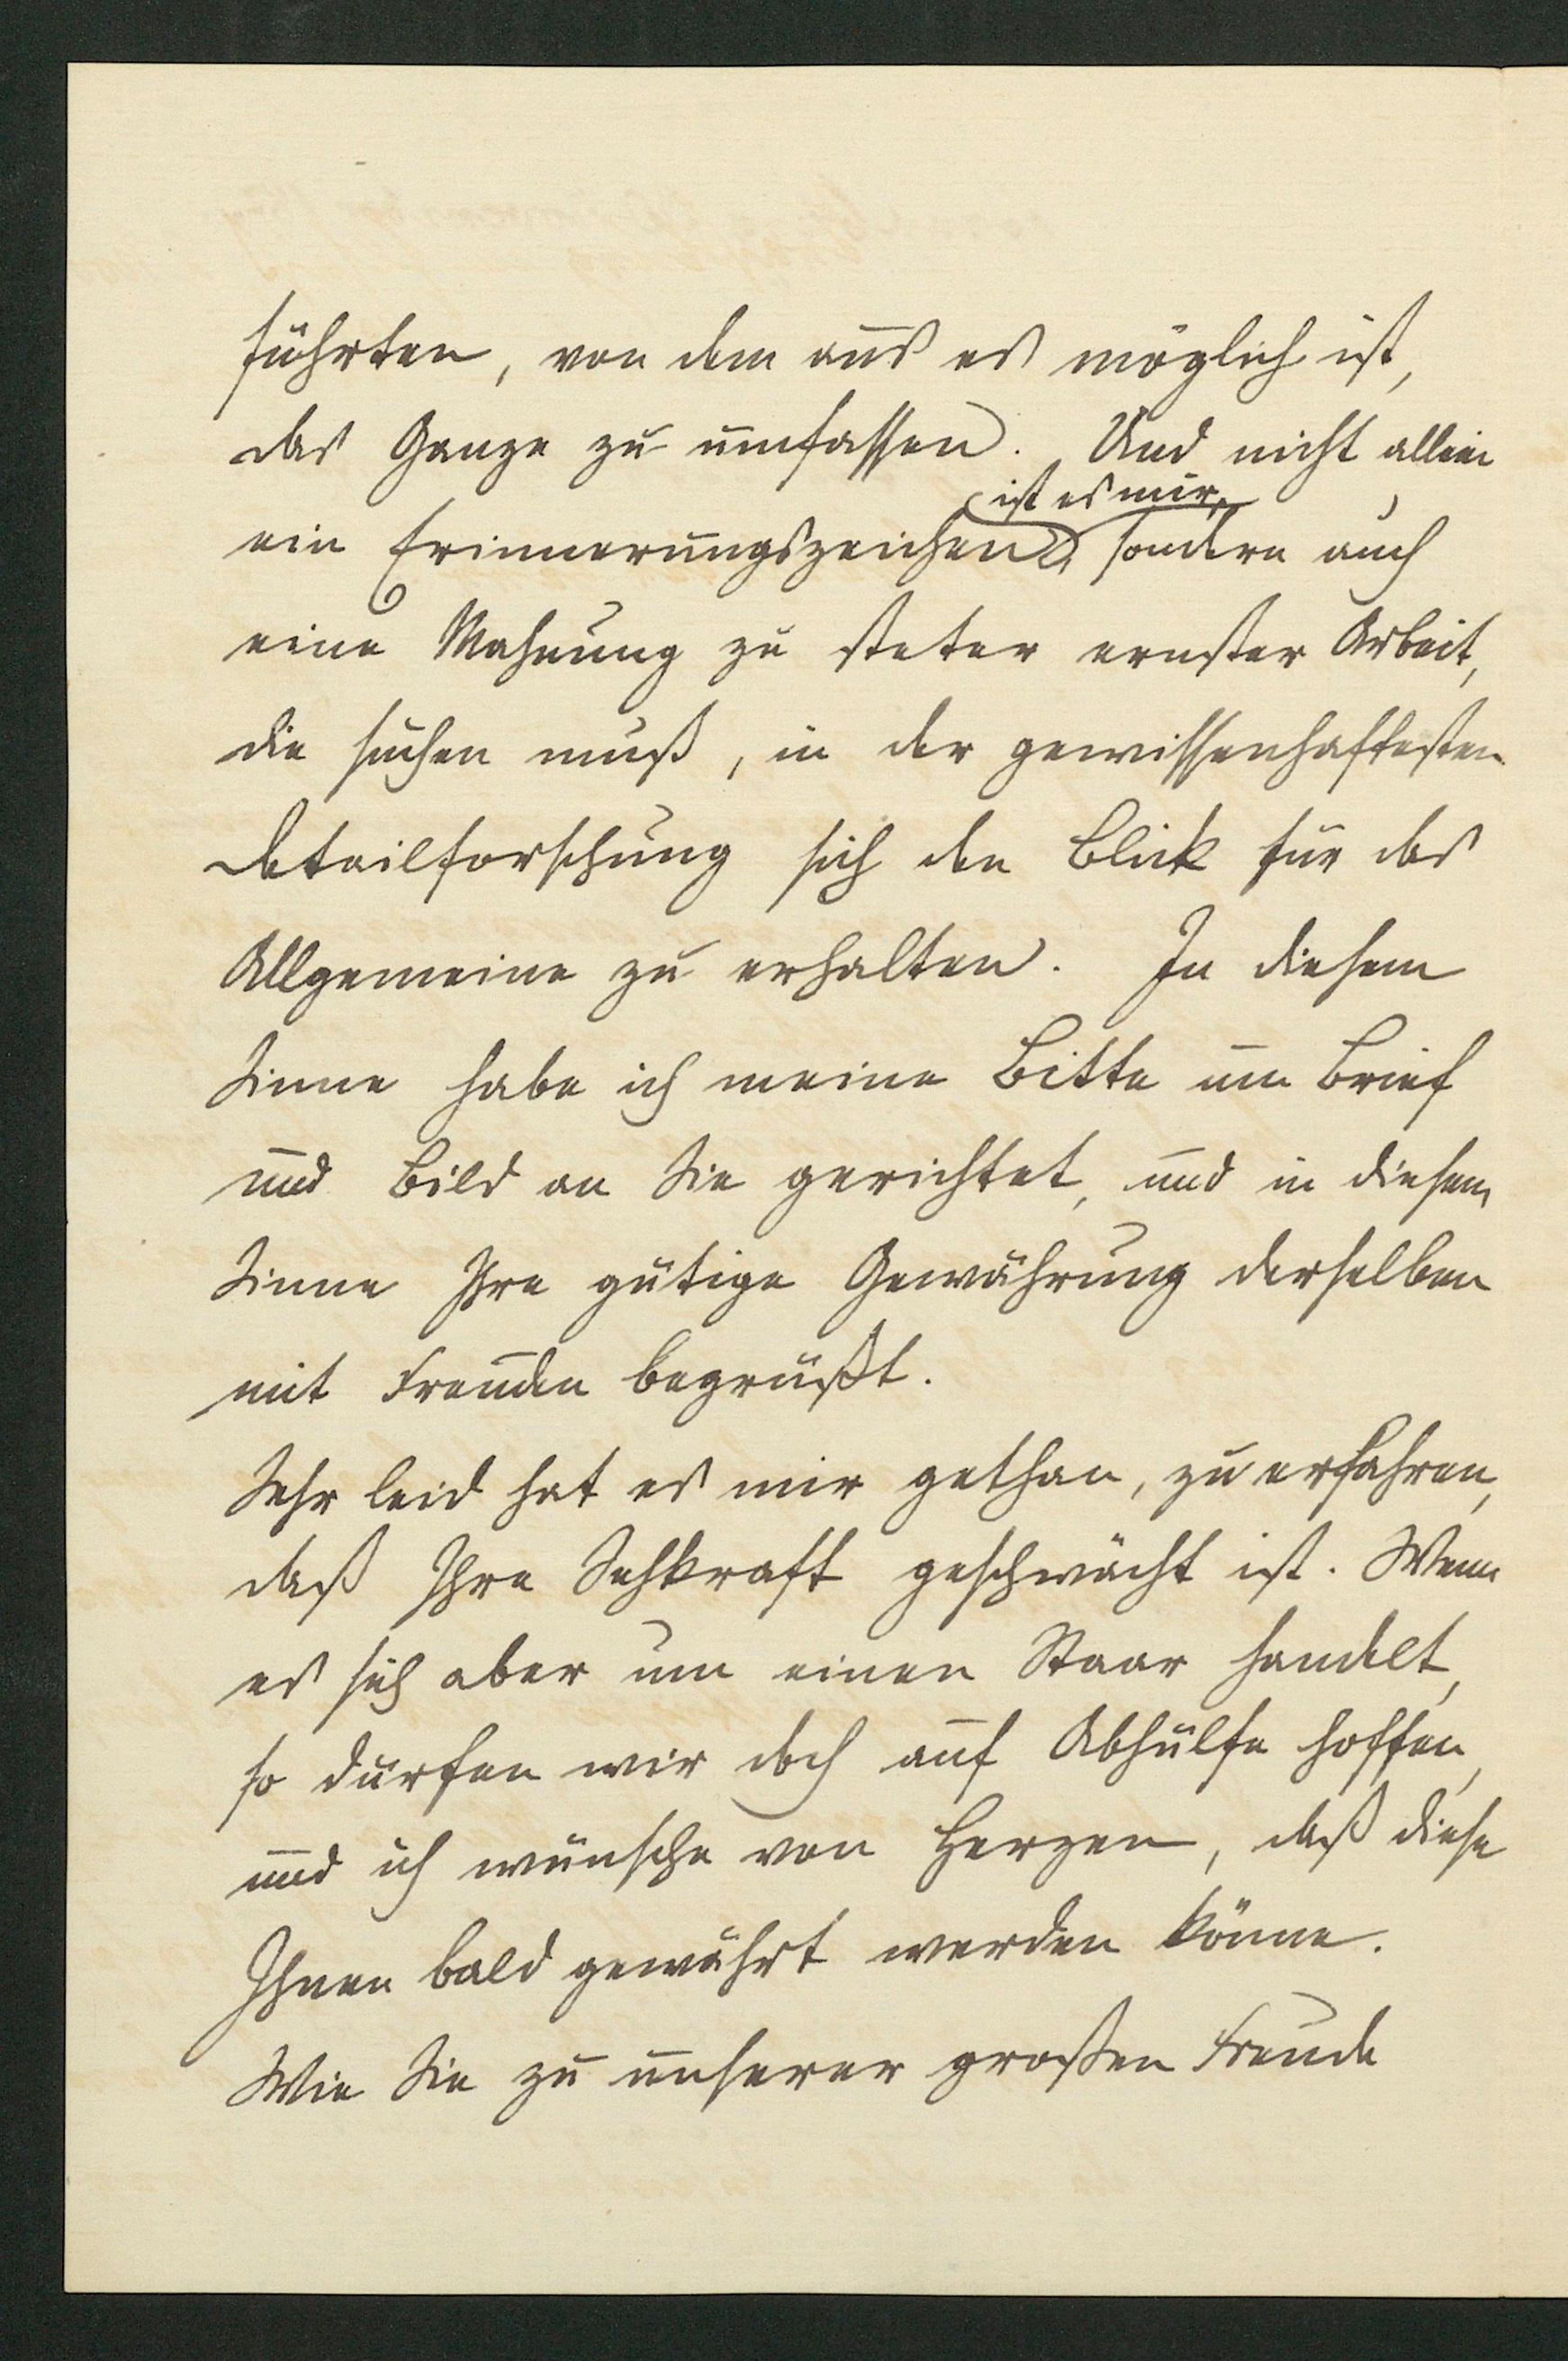 führten, von dem aus es möglich ist,
das Ganze zu umfassen. Und nicht allein
ist es mir,
ein Erinnerungszeichen, sondern auch
eine Mahnung zu steter ernster Arbeit,
die suchen muß, in der gewissenhaftesten
Detailforschung sich den Blick für das
Allgemeine zu erhalten. In diesem
Sinne habe ich meine Bitte um Brief
und Bild an Sie gerichtet, und in diesem
Sinne Ihre gütige Gewährung derselben
mit Freuden begrüßt.
Sehr leid hat es mir gethan, zu erfahren,
daß Ihre Sehkraft geschwächt ist. Wenn
es sich aber um einen Staar handelt,
so dürfen wir doch auf Abhülfe hoffen,
und ich wünsche von Herzen, daß diese
Ihnen bald gewährt werden könne.
Wie Sie zu unserer großen Freude